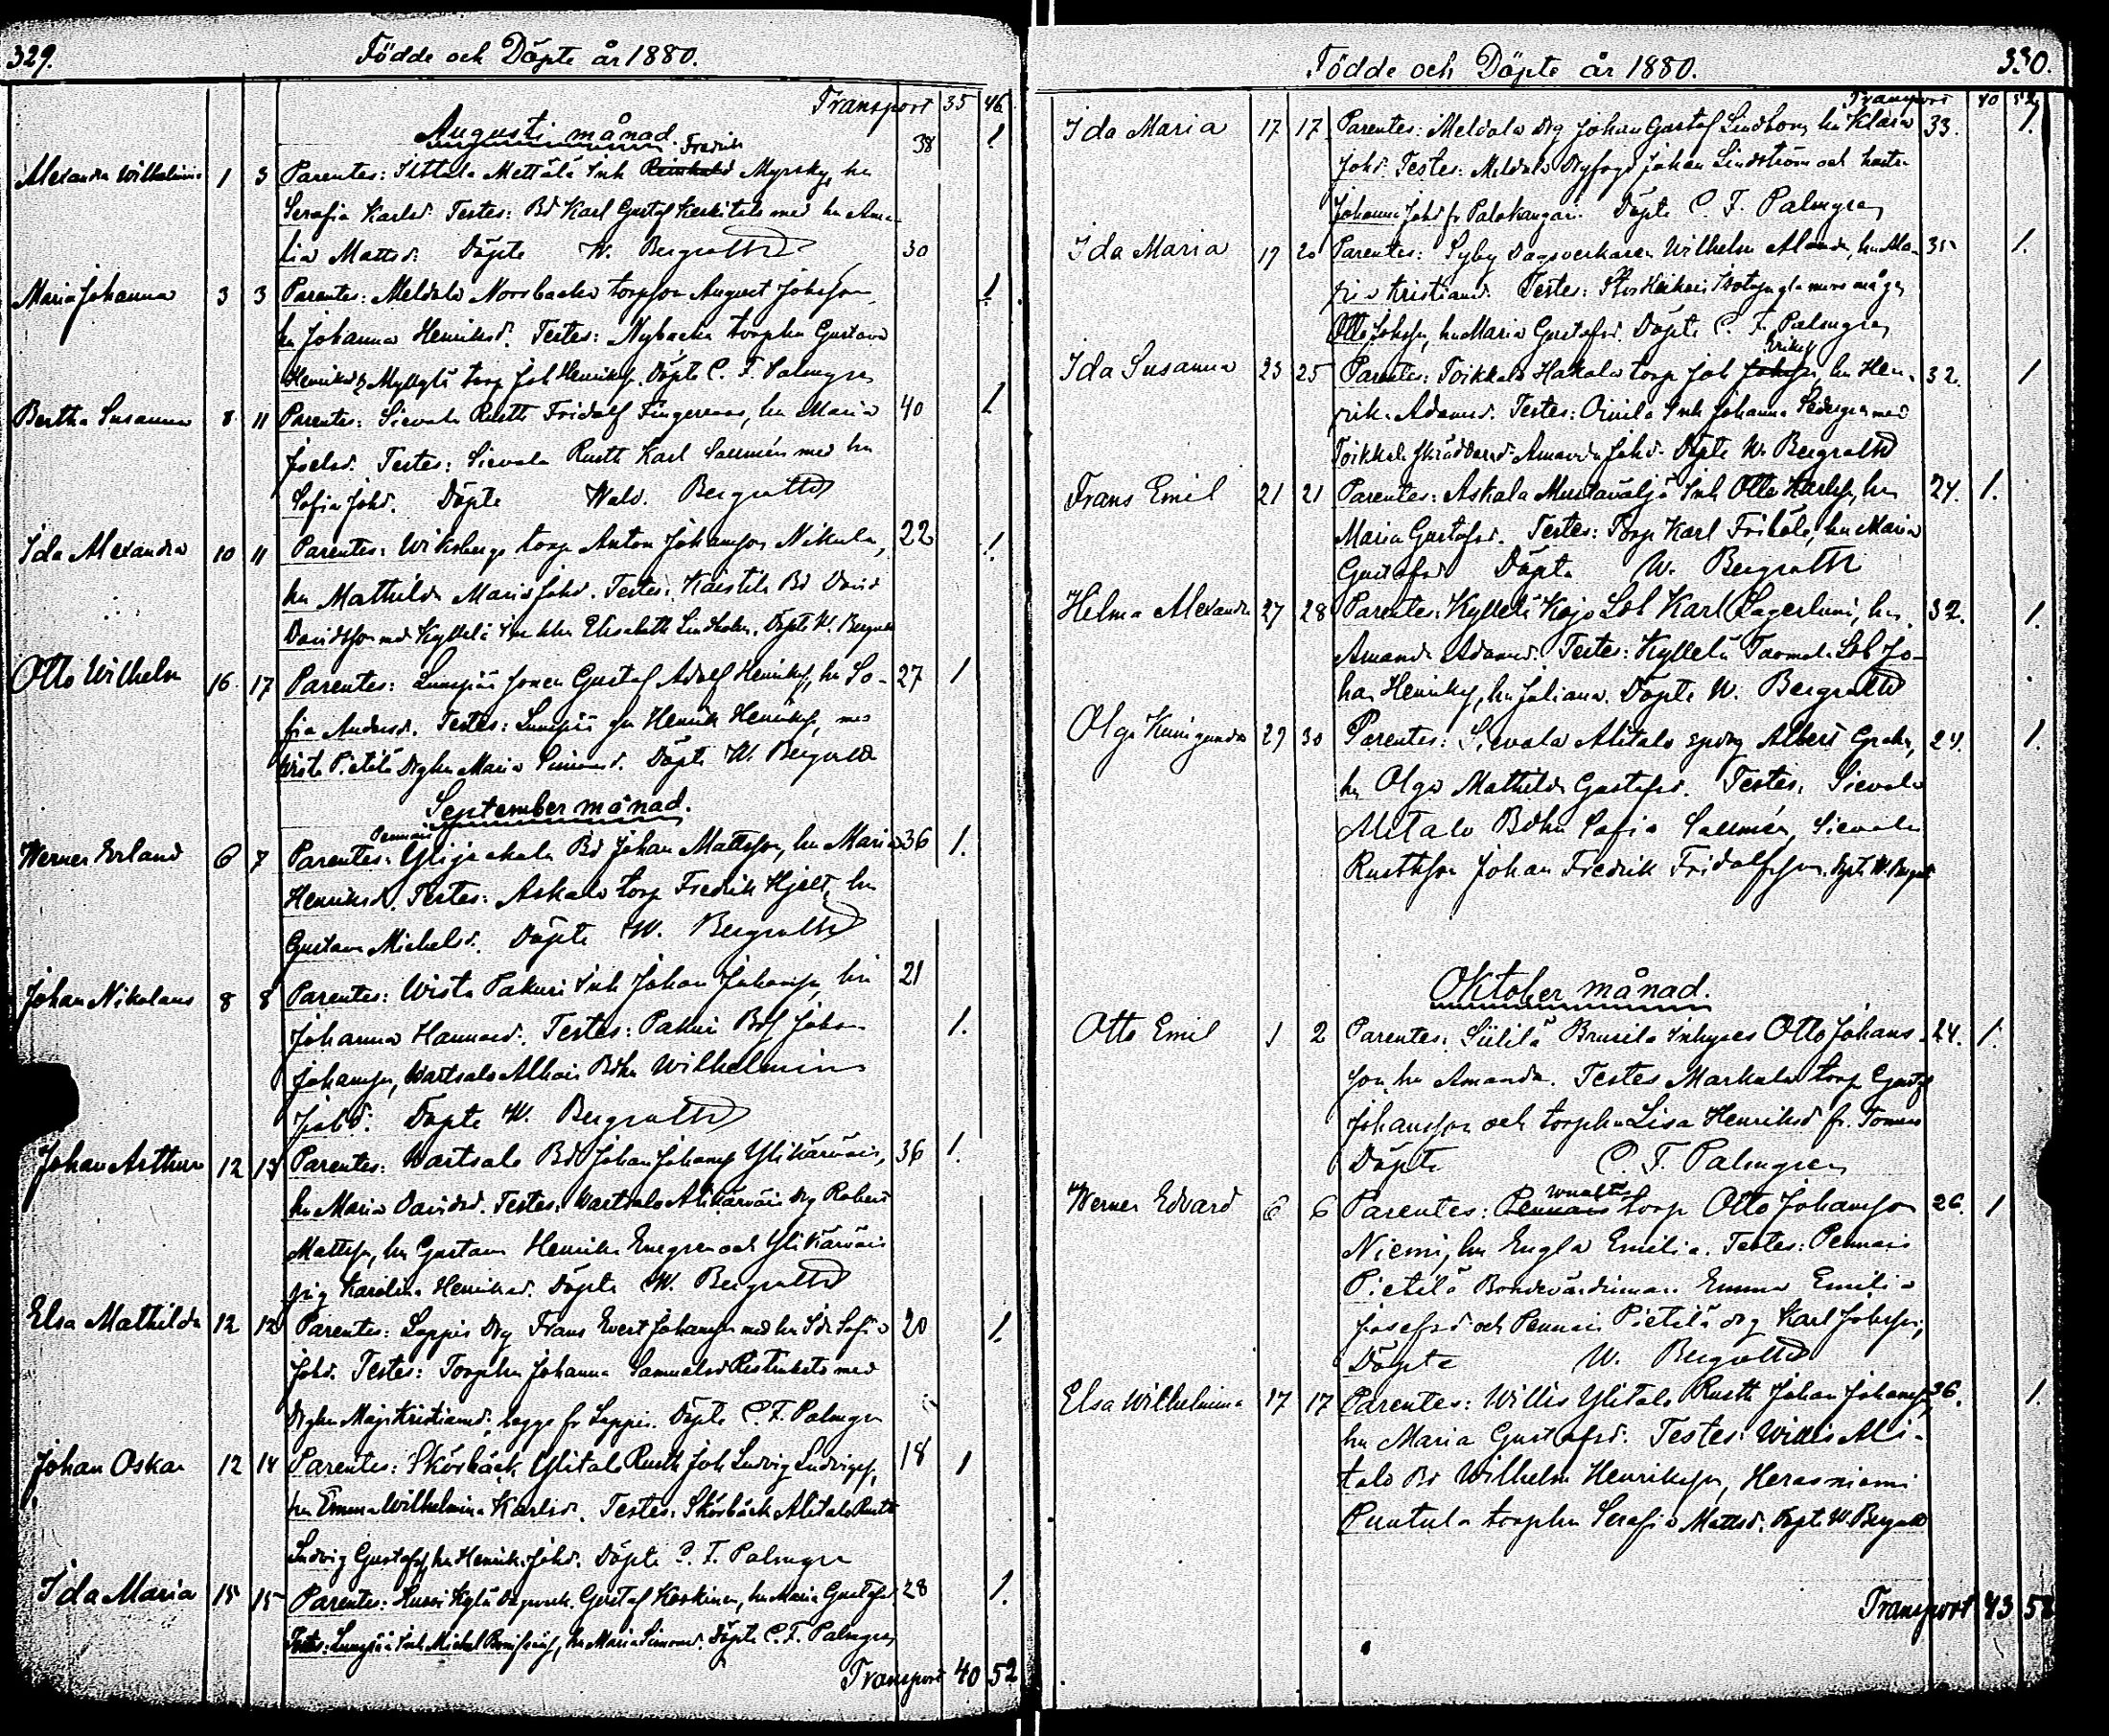 329.
Födde och Döpte år 1880.
Transport 35 46
Augusti månad.
Fredrik 38 1
Alexandra Wilhelmina 1 3 Parentes: Mettälä Inh Myrsky, hu
Serafia Karlsd. Testes: Bd Karl Gustaf Keskitalo med hu Ama-
lia Mattsd. Döpte W. Bergroth
30
Maria Johanna 3 3 Parentes: Meldola Norrbacka torpson August Johsson, 1
hu Johanna Henriksd. Testes: Nybacka torphu Gustava
Henriksd Myllylä torp Joh Henriks. Döpte C. F. Palmgren
Bertha Susanna 8 11 Parentes: Sievola Rusth Fridolf hu Maria 40 1
Joelsd. Testes: Sievola Rusth Karl Sallmén med hu
Sofia Johd. Döpte Wald. Bergroth
Ida Alexandra 10 11 Parentes: Wiksberga torp Anton Johansson Nikula, 22 1.
hu Mathilda Maria Johd. Testes: Kaistila Bd David
Davidsson med Kylletä Elisabeth Lindholm. Döpte W. Bergroth
Otto Wilhelm 16 17 Parentes: Gustaf Adolf Henriks, hu So- 27 1
fia Andersd. Testes: Henrik Henriks, med
Wista Pietilä Drghu Maria Simonsd. Döpte W. Bergroth
September månad.
Pennais
Werner Erland 6 7 Parentes: Ylijaakala Bd Johan Mattsson, hu Maria 36 1.
Henriksd. Testes: Askala torp Fredrik Hjelt, hu
Gustava Michelsd. Döpte W. Bergroth
Johan Nikolaus 8 8 Parentes: Wista Pakuri Inh Johan Johansson, hu 21
Johanna Hannasd. Testes: Pakuri Johan 1.
Johansson, Wartsalo Alhois Bdhu Wilhelmina
Johd. Döpte W. Bergroth
Johan Arthur 12 13 Parentes: Wartsalo Bd Johan Johans Ylikärväis, 36 1.
hu Maria Davidsd. Testes: Wartsalo Alikärväis drg Robert
Mattsson, hu Gustava Henrika Enegren och Ylikärväis
pig Karolina Henriksd. Döpte W. Bergroth
Elsa Mathilda 12 12 Parentes: Lappis Drg Frans Evert Johansson med hu Ida Sofia 20 1.
Johd. Testes: Torphu Johanna Samuelsd med
Drghu Maja Kristiansd, begge fr Lappis. Döpte C. F. Palmgren
Johan Oskar 12 14 Parentes: Skörbäck Ylitalo Rusth Joh Ludvig Ludvigs, 18 1
hu Emma Wilhelmina Karlsd. Testes: Skörbäck Alitalo Rusth
Ludvig Gustafs, hu Henrika Johd. Döpte C. F. Palmgren
Ida Maria 15 15 Parentes: Kylä Gustaf Koskinen, hu Maria Gustafsd. 28 1.
Testes: Inh Michel hu Maria Simonsd. Döpte C. F. Palmgren
Transport 40 52
Födde och Döpte år 1880.
330.
Transport 40 52
Ida Maria 17 17 Parentes: Meldola Drg Johan Gustaf Lindborg hu Klara 33. 1.
Johd. Testes: Meldola Johan Lindström och hustru
Johanna Johd fr Palokangas. Döpte C. F. Palmgren
Ida Maria 19 20 Parentes: Syby Dagsverkaren Wilhelm hu 35 1.
Kristiansd. Testes: måg
Otto Johsson, hu Maria Gustafsd. Döpte C. F. Palmgren
Eriks
Ida Susanna 23 25 Parentes: Toikkala Hakala torp Joh Johsson, hu Hen- 32. 1
rika Adamsd. Testes: Oinila Inh Johanna Sedergren med
Toikkala skräddared. Amanda Johd. Döpte W. Bergroth
Frans Emil 21 21 Parentes: Askala Mustavalja Inh Otto Karlss, hu 24. 1.
Maria Gustafsd. Testes: Torp Karl hu Maria
Gustafsd Döpte W. Bergroth
Helma Alexandra 27 28 Parentes: Kylletä Kojo Lsb Karl Lagerlund, hu 32. 1.
Amanda Adamsd. Testes: Kylletä Lsb Jo-
han Henriks, hu Juliana. Döpte W. Bergroth
Olga Kunigunda 29 30 Parentes: Sievola Alitalo Albert 24. 1.
hu Olga Mathilda Gustafsd. Testes: Sievola
Alitalo Bdhu Sofia Sallmén, Sievola
Rusthson Johan Fredrik Fridolfsson. Döpte W. Bergroth
Oktober månad.
Otto Emil 1 2 Parentes: Siililä Brusila Inhyses Otto Johans- 24. 1.
son hu Amanda. Testes Markula torp Gustaf
Johansson och torphu Lisa Henriksd fr.
Döpte C. F. Palmgren
Werner Edvard 6 6 Parentes: Pennais torp Otto Johansson 26. 1
Niemi, hu Engla Emilia. Testes: Pennais
Pietilä Bondevärdinnan Emma Emilia
Josefsd och Pennais Pietilä drg Karl Johsson,
Döpte W. Bergroth
Elsa Wilhelmina 17 17 Parentes: Willis Ylitalo Rusth Johan Johans, 36. 1.
hu Maria Gustafsd. Testes: Willis Ali-
talo Bd Wilhelm Henriksson, Herasniemi
Puntula torphu Serafia Mattsd. Döpte W. Bergroth
Transport 43 58